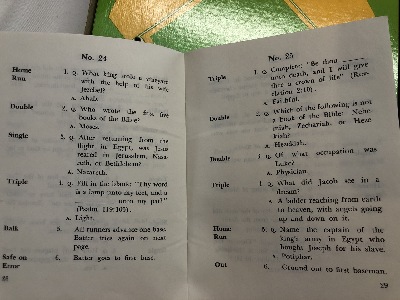 No. 24
Home Run
1. Q. What king stole a vineyard
with the help of his wife
Jezebel?
A. Ahab.
Double
2. Q. Who wrote the first five
books of the Bible?
A. Moses.
Single
3. Q. After returning from the
flight in Egypt, was Jesus
reared in Jerusalem, Naza-
reth, or Bethlehem?
A. Nazareth.
Triple
4. Q. Fill in the blank: "Thy word
is a lamp unto my feet, and a
unto my path"
(Psalm 119:105).
A. Light.
Balk
5. All runners advance one base.
Batter tries again on next
page.
Safe on Error
6. Batter goes to first base.
28
No. 25
Triple
1. Q. Complete: "Be thou ____
unto death, and I will give
thee a crown of life" (Rev-
elation 2:10).
A. Faithful.
Double
2. Q. Which of the following is not
a book of the Bible: Nehe-
miah, Zechariah, or Heze-
kiah?
A. Hezekiah.
Double
3. Q. Of what occupation was
Luke?
A. Physician
Triple
4. Q. What did Jacob see in a
dream?
A. A ladder reaching from earth
to heaven, with angels going
up and down on it.
Home Run
5. Q. Name the captain of the
king's army in Egypt who
bought Joseph for his slave.
A. Potiphar.
Out
6. Ground out to first baseman.
29